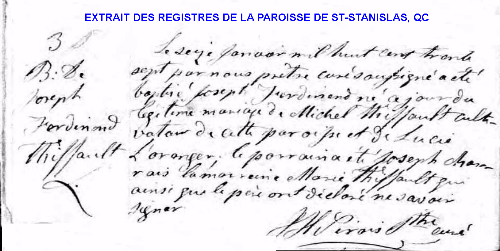 EXTRAIT DES REGISTRES DE LA PAROISSE DE ST-STANISLAS, QC
B: De
Joseph
Ferdinend
Thiffault
Le seize Janvier mil huit cent trente
sept par nous prêtre curé soussigné a été
baptisé Joseph Ferdinend né ce jour du
légitime mariage de Michel Thiffault culti-
vateur de cette paroisse et de Lucie
L'oranger; le parrain a été Joseph
la marraine Marie Thiffault qui
ainsi que le père ont déclaré ne savoir
signer
Ptre
curé